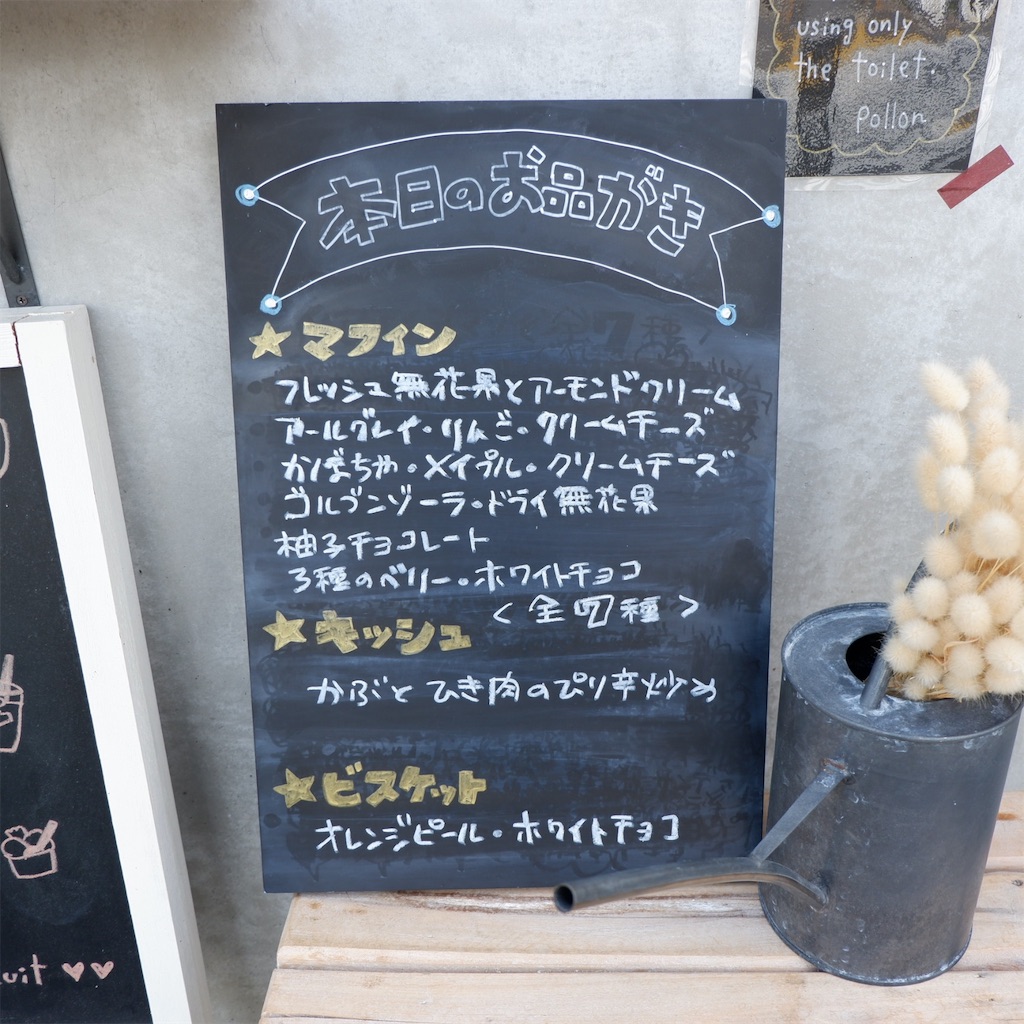 using only
the toilet.
Pollon
本日のお品がき
★マフィン
フレッシュ無花果とアーモンドクリーム
アールグレイ・りんご・クリームチーズ
かぼちゃ・メイプル・クリームチーズ
ゴルゴンゾーラ・ドライ無花果
柚子チョコレート
3種のベリー・ホワイトチョコ
<全7種>
★キッシュ
かぶとひき肉のぴり辛炒め
★ビスケット
オレンジピール・ホワイトチョコ
uit ♡♡